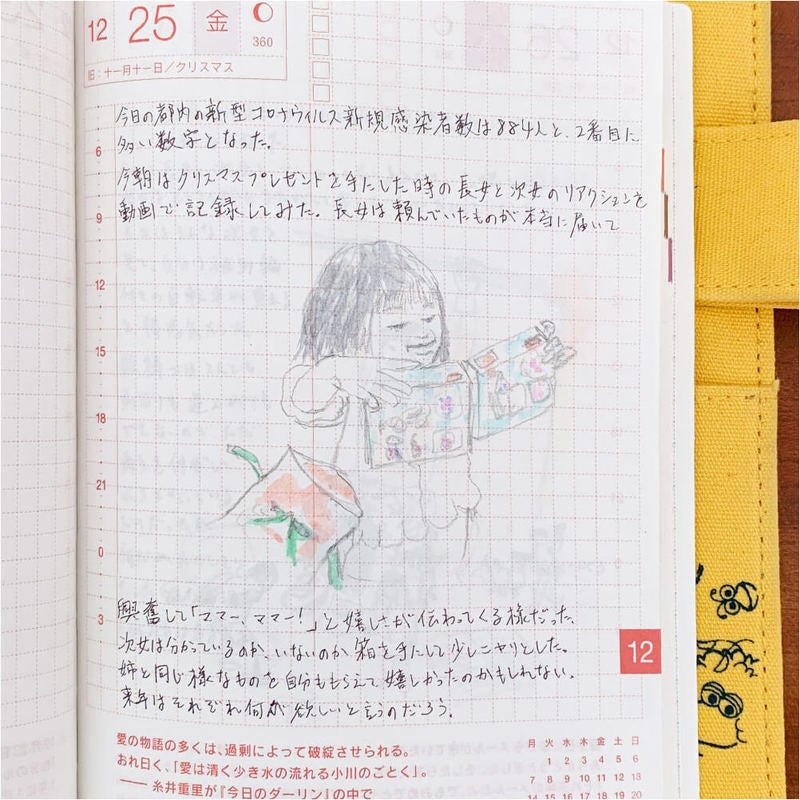 12 25 金
360
旧：十一月十一日／クリスマス
今日の都内の新型コロナウィルス新規感染者数は884人と、2番目に
多い数字となった。
今朝はクリスマスプレゼントを手にした時の長女と次女のリアクションを
動画で記録してみた。長女は頼んでいたものが本当に届いて
6
9
12
15
18
21
0
3
興奮して「ママー、ママー!」と嬉しさが伝わってくる様だった。
次女は分かっているのか、いないのか箱を手にして少しニヤリとした。
姉と同じ様なものを自分ももらえて嬉しかったのかもしれない。
来年はそれぞれ何が欲しいと言うのだろう。
12
愛の物語の多くは、過剰によって破綻させられる。
おれ曰く、「愛は清く少き水の流れる小川のごとく」。
―― 糸井重里が『今日のダーリン』の中で
月 火 水 木 金 土 日
1 2 3 4 5 6
7 8 9 10 11 12 13
14 15 16 17 18 19 20